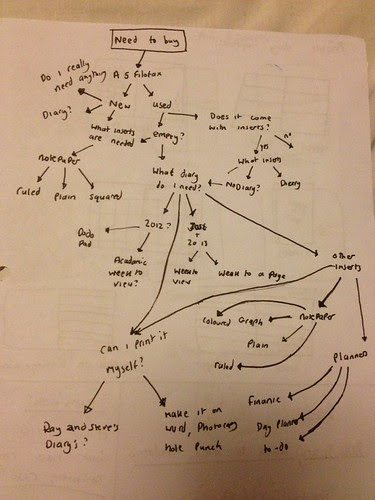 Need to buy
Do I really
need anything
A5 Filofax
Diary?
New
used
Does it come
with inserts?
What inserts
are needed
empty?
yes
no
What inserts
notepaper
What diary
do I need?
No Diary?
Diary
ruled
plain
squared
Dodo
Pad
2012?
Just
2013
Academic
week to
view?
Week to
view
Week to a Page
other
inserts
Coloured
Graph
notepaper
Plain
ruled
Can I print it
myself?
Planner
Ray and Steve's
Diary's?
Make it on
word, Photocopy
Hole Punch
Finance
Day Planner
to-do